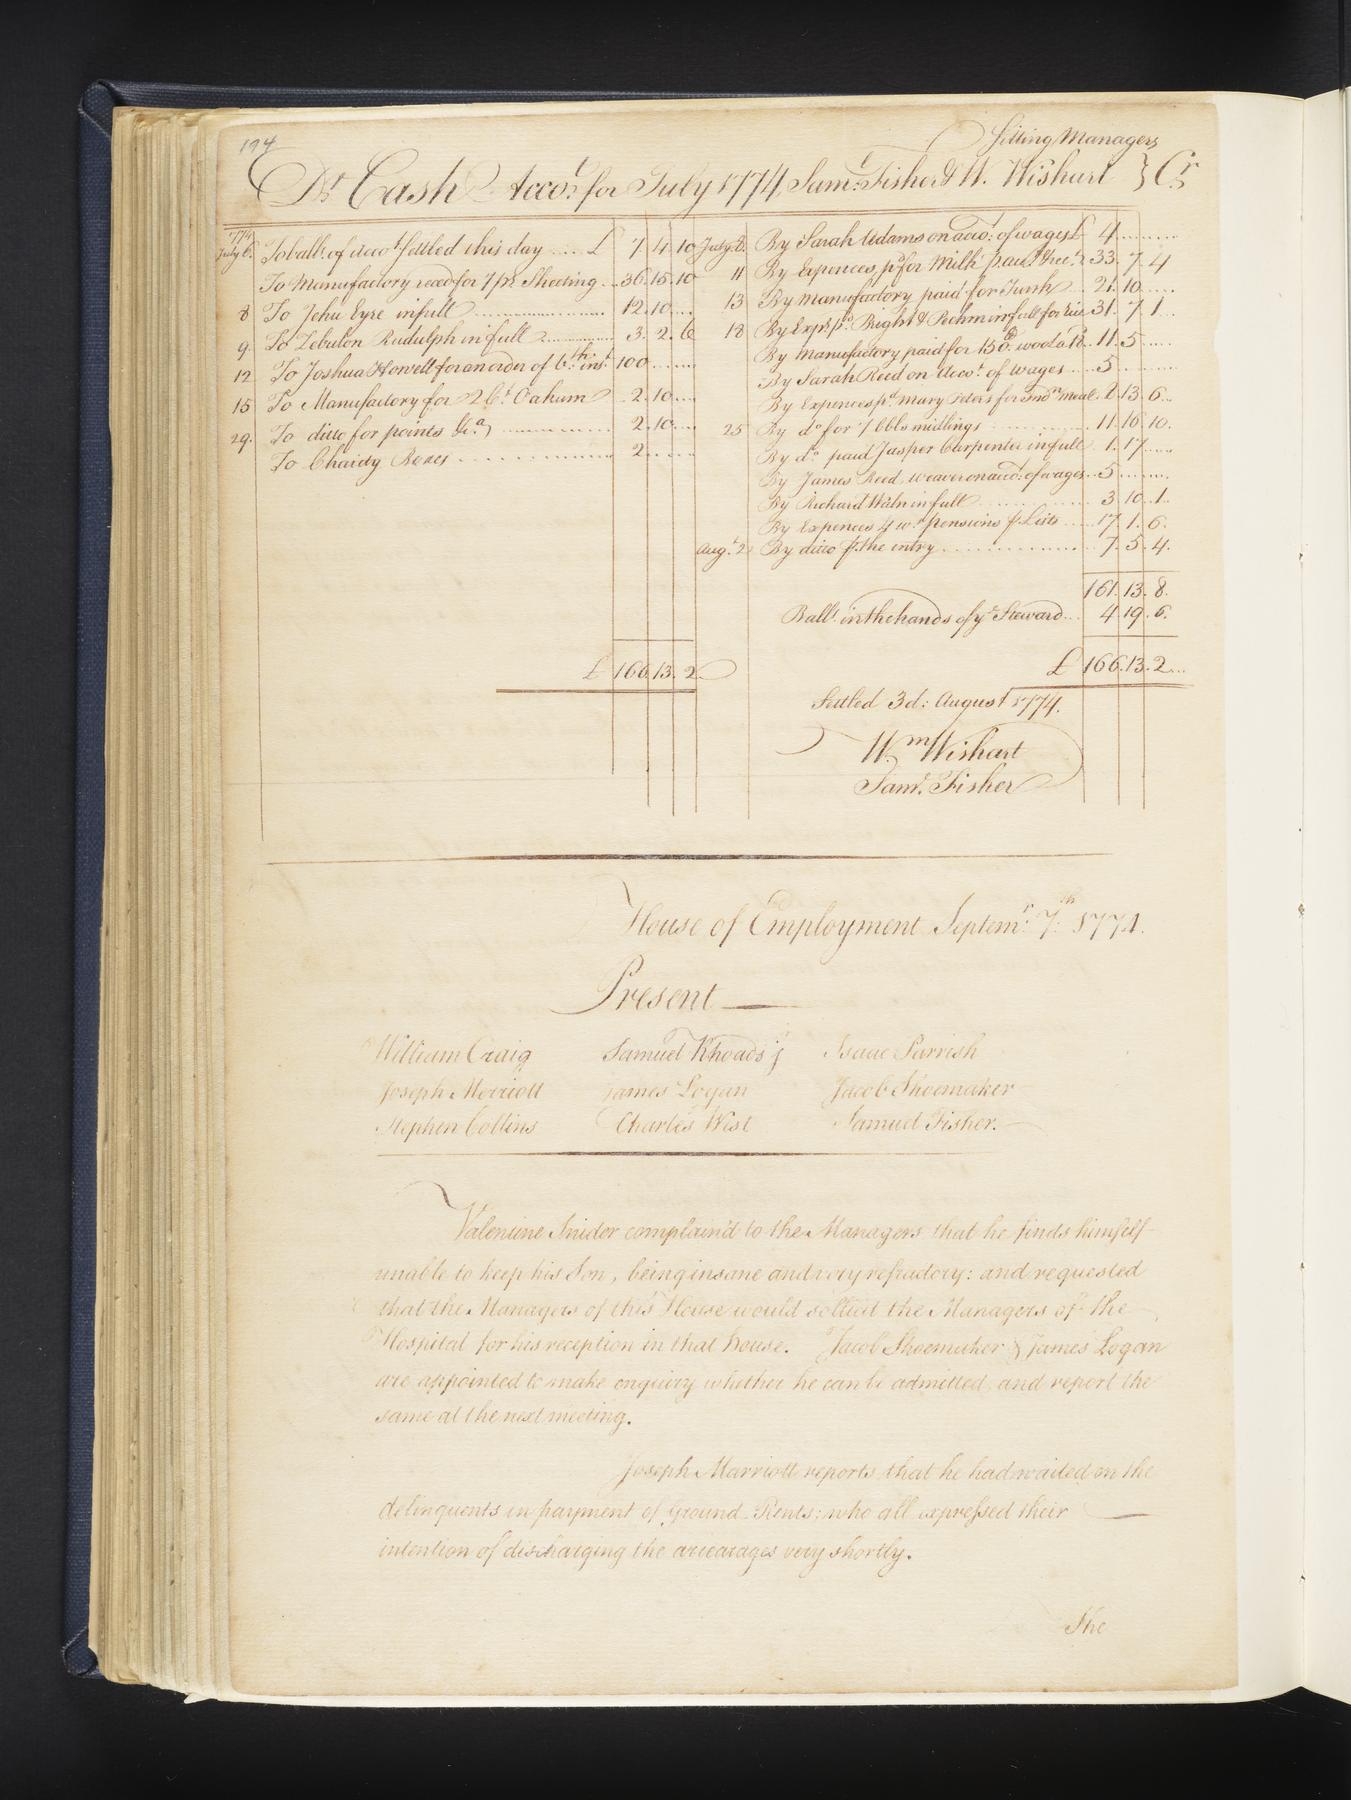 194
Sitting Managers
Dr Cash Acco.t for July 1774, Sam.l Fisher & W. Wishart } Cr
1774
July 6. To ball.e of Acco.t settled this day .... £ 7 4 10
To Manufactory reced for 7 pr. Sheeting .. 36. 15. 10
8 To Jehu Eyre in full 12. 10
9. To Zebulon Rudulph in full 3. 2. 6
12 To Joshua Howell for an order of 6.th ins.t 100
15 To Manufactory for 2 Ct. Oakum 2. 10
29. To ditto for points &ca. 2. 10
To Charity Boxes 2
£ 166 13. 2
July 6. By Sarah Adams on acco.t of wages £ 4
11 By Expences p.d for Milk 33. 7. 4
13 By Manufactory paid for 21. 10
18 By Exp.s p.d in full for 31. 7 1
By Manufactory paid for 150 wool a 11. 5
By Sarah Reed on Acco.t of wages 5
By Expences p.d Mary Peters for Ind.n Meal. 2. 13. 6
25 By d.o for 7 bbls midlings 11. 16 10.
By d.o paid Jasper Carpenter in full 1. 17
By James Reed, weaver on acco.t of wages 5
By Richard Waln in full 3 10. 1
By Expences 4 w.s pensions p. Lists 17. 1. 6.
Aug.t 2 By ditto p. the entry 7. 5. 4.
161. 13. 8.
Ball.e in the hands of y.e Steward 4 19. 6.
£ 166. 13. 2
Settled 3d: August 1774.
W.m Wishart
Sam.l Fisher
House of Employment Septem.r 7.th 1774.
Present —
William Craig Samuel Rhoads j Isaac Parrish
Joseph Marriott James Logan Jacob Shoemaker
Stephen Collins Charles West Samuel Fisher.
Valentine Snider complain'd to the Managers that he finds himself
unable to keep his Son, being insane and very refractory: and requested
that the Managers of this House would sollicit the Managers of the
Hospital for his reception in that house. Jacob Shoemaker & James Logan
are appointed to make enquiry whether he can be admitted, and report the
same at the next meeting.
Joseph Marriott reports that he had waited on the
delinquents in payment of Ground-Rents; who all expressed their
intention of discharging the arrearages very shortly.
The